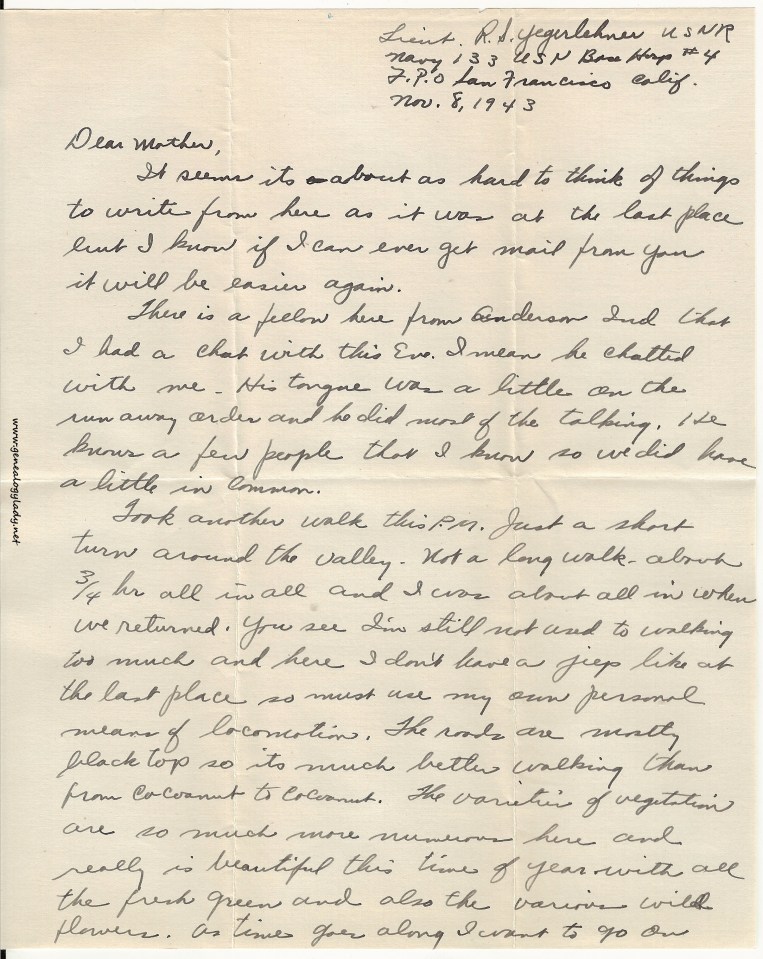 Lieut. R.S. Yegerlehner USNR
Navy 133 USN Base Hosp #4
F.P.O San Francisco Calif.
Nov. 8, 1943
Dear Mother,
It seems its about as hard to think of things
to write from here as it was at the last place
but I know if I can ever get mail from you
it will be easier again.
There is a fellow here from Anderson Ind that
I had a chat with this Eve. I mean he chatted
with me - His tongue was a little on the
run away order and he did most of the talking. He
knows a few people that I know so we did have
a little in common.
Took another walk this P.M. Just a short
turn around the valley. Not a long walk - about
3/4 hr all in all and I was about all in when
we returned. You see I'm still not used to walking
too much and here I don't have a jeep like at
the last place so must use my own personal
means of locomotion. The roads are mostly
black top so its much better walking than
from cocoanut to cocoanut. The varieties of vegetation
are so much more numerous here and
really is beautiful this time of year with all
the fresh green and also the various wild
flowers. As time goes along I want to go on
www.genealogylady.net